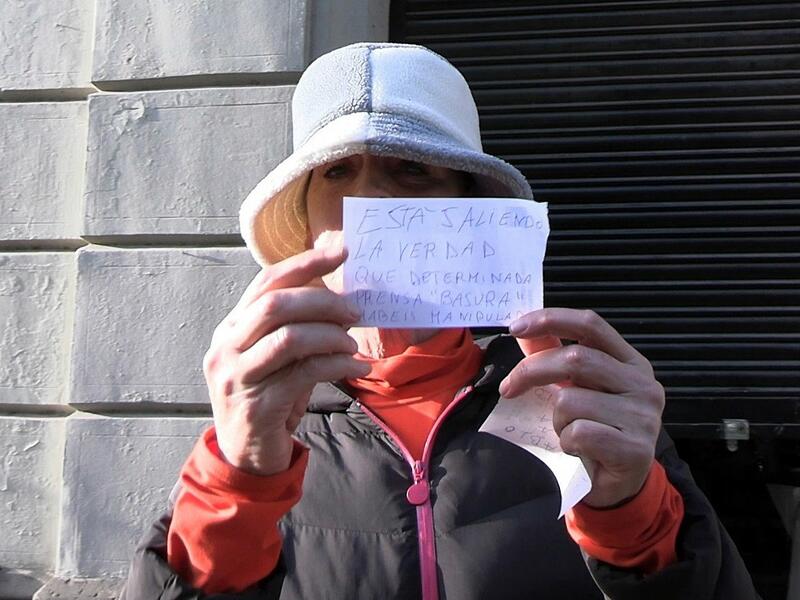 ESTA SALIENDO
LA VERDAD
QUE DETERMINADA
PRENSA "BASURA"
HABEIS MANIPULAD